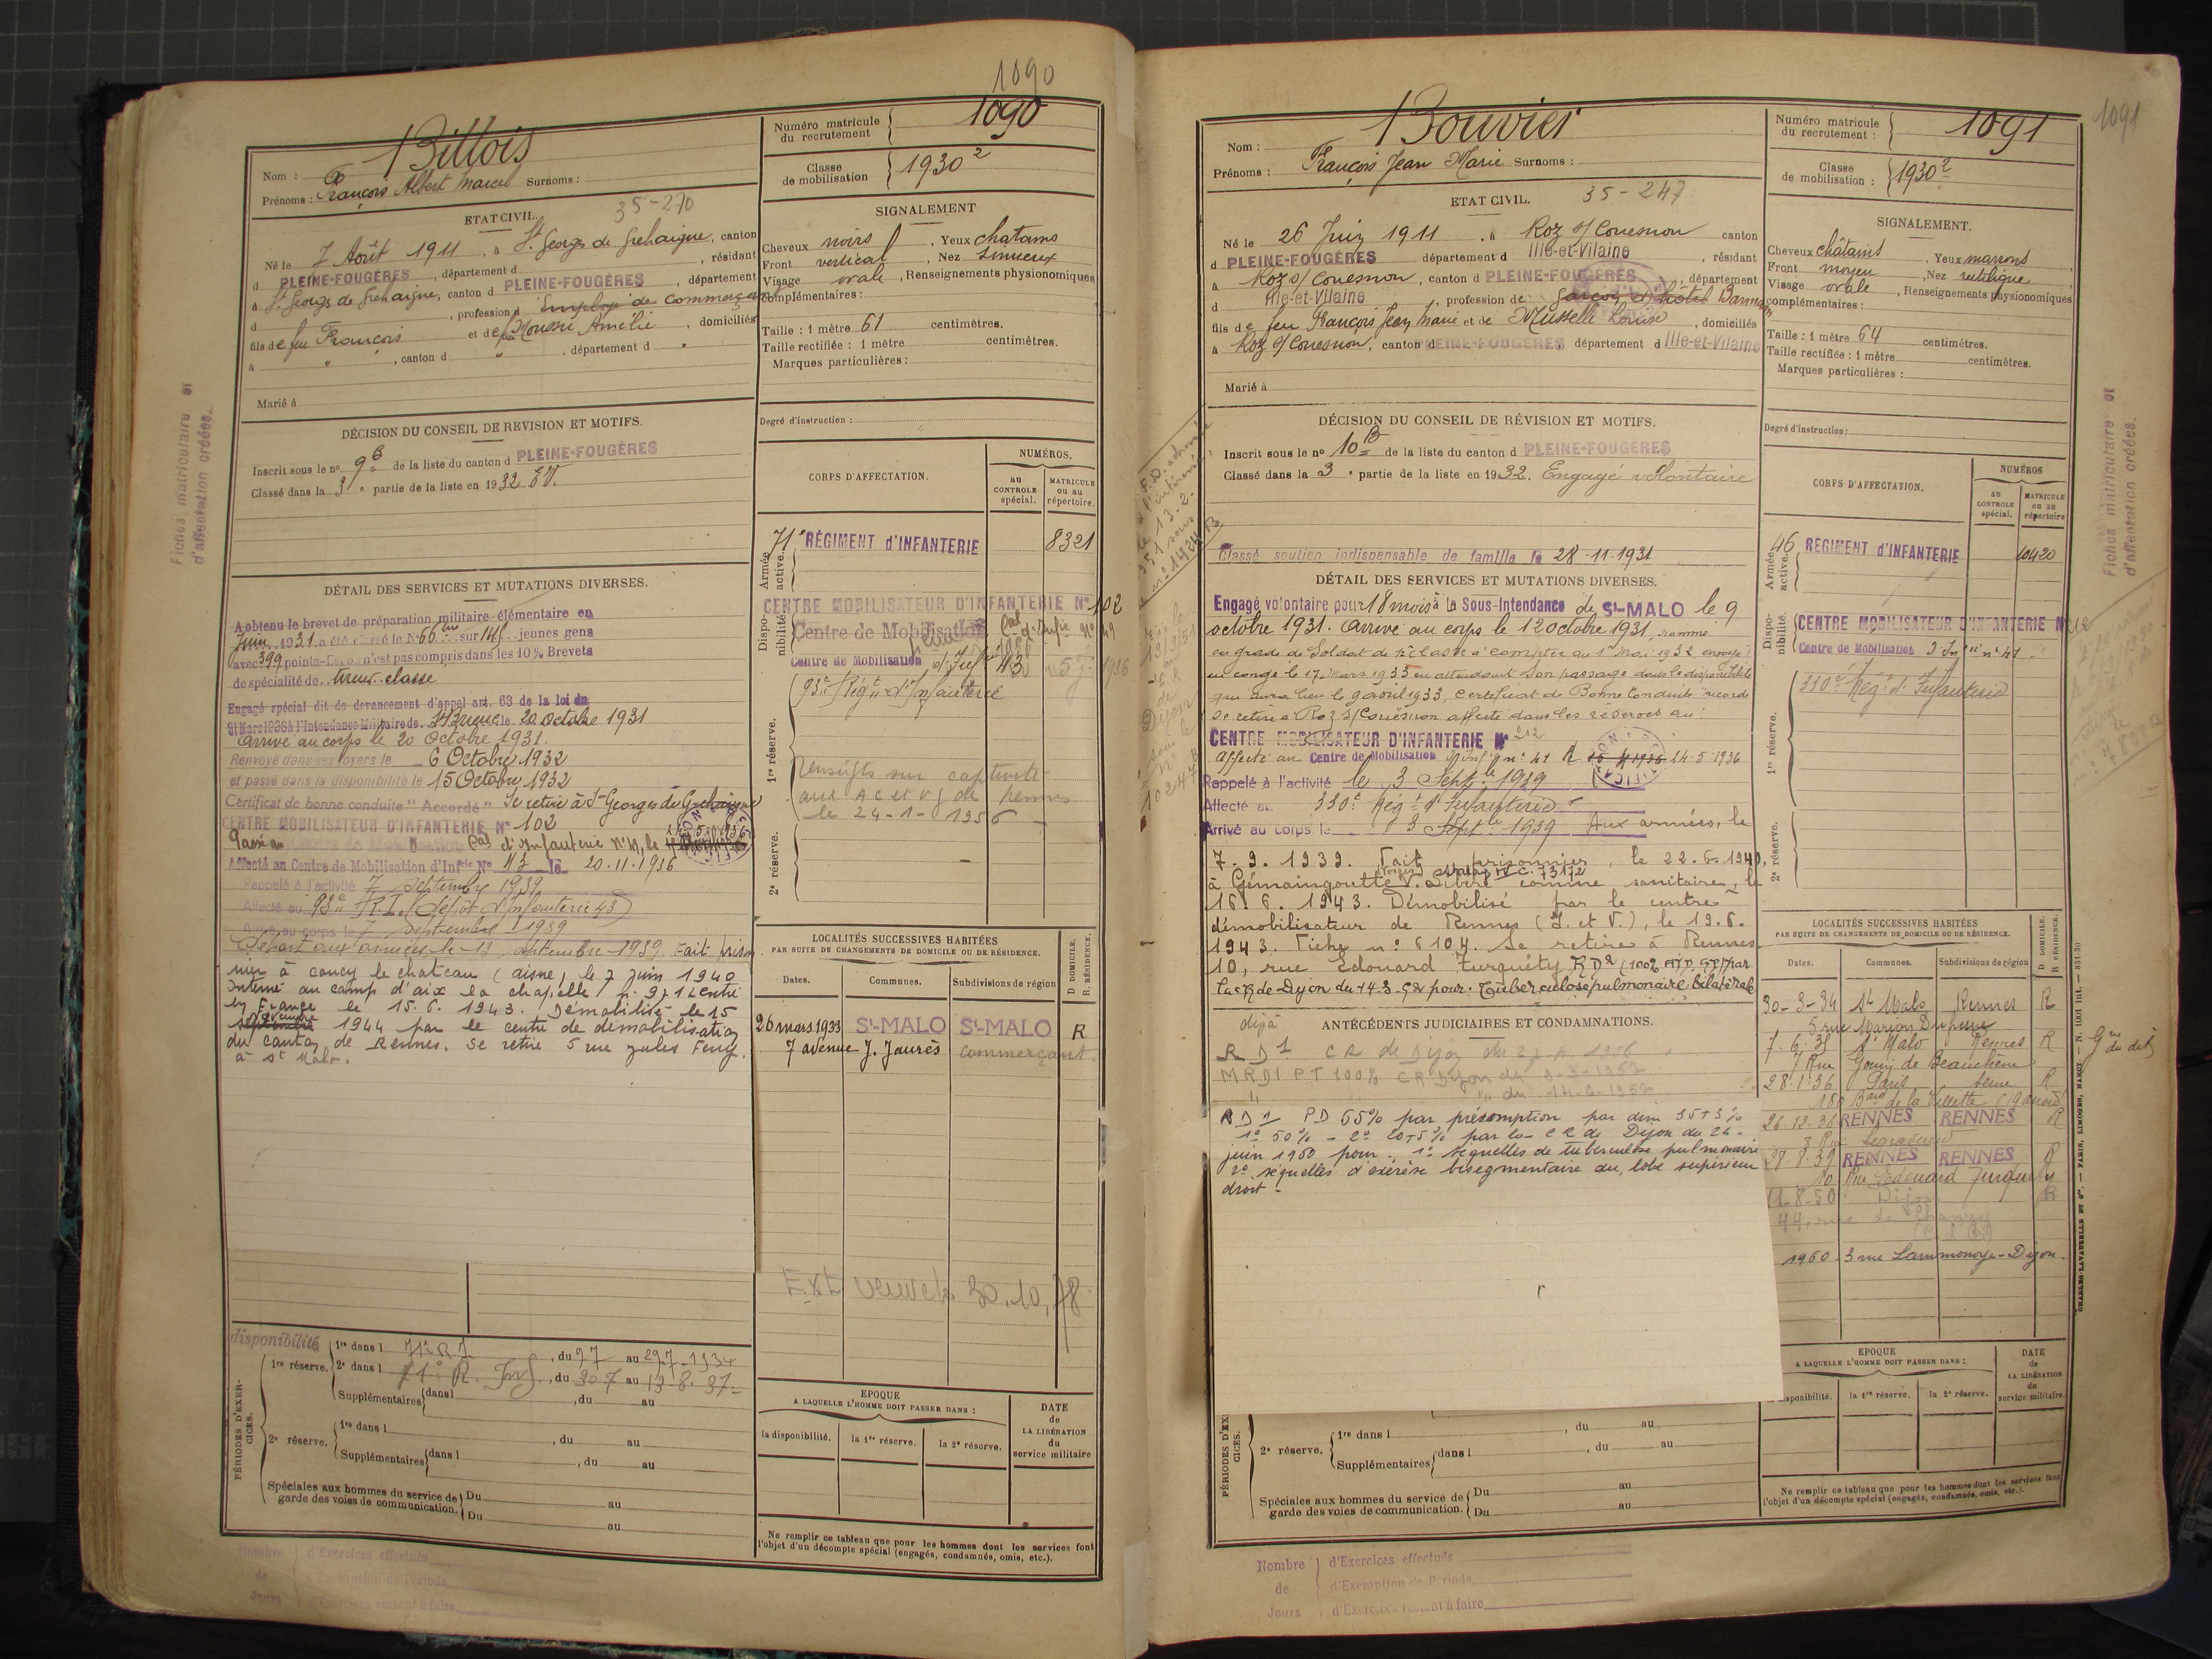 1090
Nom : Billois
Prénoms : François Albert Marcel Surnoms :
Numéro matricule du recrutement { 1090
Classe de mobilisation { 1930²
ETAT CIVIL. 35-270
Né le 7 Août 1911, à St Georges de Grehaigne, canton
d PLEINE-FOUGÈRES, département d , résidant
à St Georges de Grehaigne, canton d PLEINE-FOUGÈRES, département
d , profession d Employé de Commerçant
fils de feu François et de feu Moussu Amélie, domiciliés
à " , canton d " , département d "
Marié à
SIGNALEMENT
Cheveux noirs, Yeux chatains
Front vertical, Nez sinueux
Visage ovale, Renseignements physionomiques
complémentaires :
Taille : 1 mètre 61 centimètres.
Taille rectifiée : 1 mètre centimètres.
Marques particulières :
Degré d'instruction :
DÉCISION DU CONSEIL DE REVISION ET MOTIFS.
Inscrit sous le no 9 B de la liste du canton d PLEINE-FOUGÈRES
Classé dans la 3e partie de la liste en 1932 EV.
CORPS D'AFFECTATION.
NUMÉROS.
au CONTROLE spécial.
MATRICULE ou au répertoire.
Armée active.
71e RÉGIMENT d'INFANTERIE 8321
Disponibilité.
CENTRE MOBILISATEUR D'INFANTERIE No 102
Centre de Mobilisation
Centre de Mobilisation d'Infie 43
1re réserve.
93e Régt d'Infanterie
renseigts sur captivité
aux A C et V G de Rennes
le 24-1-1956
2e réserve.
Fiches matriculaire et
d'affectation créées.
DÉTAIL DES SERVICES ET MUTATIONS DIVERSES.
A obtenu le brevet de préparation militaire élémentaire en
Juin 1931 a été classé le No 66 sur 145 jeunes gens
avec 399 points n'est pas compris dans les 10 % Brevets
de spécialité de
Engagé spécial dit de devancement d'appel art. 63 de la loi du
31 Mars 1928 à l'Intendance Militaire de St Brieuc le 20 octobre 1931
Arrivé au corps le 20 Octobre 1931.
Renvoyé dans ses foyers le 6 Octobre 1932
et passé dans la disponibilité le 15 Octobre 1932
Certificat de bonne conduite "Accordé" Se retire à St Georges de Grehaigne
CENTRE MOBILISATEUR D'INFANTERIE No 102
Affecté au Centre de Mobilisation d'Infrie No 43 le 20-11-1936
Rappelé à l'activité 7 septembre 1939
Affecté au 93e R.I. (dépôt d'Infanterie 43)
Arrivé au corps le 7 septembre 1939
Départ aux armées le 13 septembre 1939. Fait prison
nier à coucy le chateau (aisne) le 7 juin 1940
Interné au camp d'aix la chapelle
en France le 15.6.1943. Démobilisé le 15
1944 par le centre de démobilisation
du canton de Rennes. Se retire 5 rue jules Ferry.
à St Malo.
LOCALITÉS SUCCESSIVES HABITÉES
PAR SUITE DE CHANGEMENTS DE DOMICILE OU DE RÉSIDENCE.
D. DOMICILE. R. RÉSIDENCE.
Dates. Communes. Subdivisions de région
26 mars 1933 St-MALO St-MALO R
7 avenue J. Jaurès commerçant
30.10.78
PÉRIODES D'EXERCICES.
disponibilité
1re réserve. 1re dans l 71e R.I , du 27 au 29-7-1934
2e dans l 71e R. Inf. , du 30 7 au 13-8-37-
Supplémentaires dans l , du au
2e réserve. 1re dans l , du au
Supplémentaires dans l , du au
Spéciales aux hommes du service de garde des voies de communication. Du au
Du au
EPOQUE
A LAQUELLE L'HOMME DOIT PASSER DANS :
la disponibilité. la 1re réserve. la 2e réserve.
DATE de LA LIBÉRATION du service militaire
Ne remplir ce tableau que pour les hommes dont les services font
l'objet d'un décompte spécial (engagés, condamnés, omis, etc.).
Nombre de Jours
d'Exercices effectués
d'Exemption de Période
d'Exercices restant à faire
1091
Nom : Bouvier
Prénoms : François Jean Marie Surnoms :
Numéro matricule du recrutement : { 1091
Classe de mobilisation : { 1930²
ETAT CIVIL. 35-247
Né le 26 Juin 1911, à Roz s/ Couesnon canton
d PLEINE-FOUGÈRES département d Ille-et-Vilaine, résidant
à Roz s/ Couesnon, canton d PLEINE-FOUGÈRES, département
d Ille-et-Vilaine, profession de garçon d'hôtel Barman
fils de feu François Jean Marie et de Musselle Louise, domiciliés
à Roz s/ Couesnon, canton d PLEINE-FOUGÈRES département d Ille-et-Vilaine
Marié à
SIGNALEMENT.
Cheveux châtains, Yeux marrons
Front moyen, Nez rectiligne
Visage ovale, Renseignements physionomiques
complémentaires :
Taille : 1 mètre 64 centimètres.
Taille rectifiée : 1 mètre centimètres.
Marques particulières :
Degré d'instruction :
DÉCISION DU CONSEIL DE RÉVISION ET MOTIFS.
Inscrit sous le no 10 B de la liste du canton d PLEINE-FOUGÈRES
Classé dans la 3e partie de la liste en 1932. Engagé volontaire
Classé soutien indispensable de famille le 28-11-1931
CORPS D'AFFECTATION.
NUMÉROS
au CONTROLE spécial.
MATRICULE ou au répertoire
Armée active.
46 RÉGIMENT d'INFANTERIE 10420
Disponibilité.
CENTRE MOBILISATEUR D'INFANTERIE No 212
Centre de Mobilisation d'Inf no 41
1re réserve.
330e Rég. d'Infanterie
2e réserve.
Fiches matriculaire et
d'affectation créées.
DÉTAIL DES SERVICES ET MUTATIONS DIVERSES.
Engagé volontaire pour 18 mois à la Sous-Intendance de St-MALO le 9
octobre 1931. Arrivé au corps le 12 octobre 1931 nommé
au grade de Soldat de 1re classe à compter du 1er Mai 1932 envoyé
en congé le 17 Mars 1933 en attendant son passage dans la disponibilité
qui aura lieu le 9 avril 1933, Certificat de Bonne Conduite accordé
Se retire à Roz s/ Couësnon affecté dans les réserves au :
CENTRE MOBILISATEUR D'INFANTERIE No 212
Affecté au Centre de Mobilisation d'Inf no 41 24-5-1936
Rappelé à l'activité le 3 Septbre 1939
Affecté au 330e Régt d'Infanterie
Arrivé au corps le 3 Septbre 1939 Aux armées, le
7-9-1939. Fait prisonnier, le 22.6.1940,
à Gémaingoutte (Vosges) Stalag IV C. 73172. Libéré comme sanitaire, le
16.6.1943. Démobilisé par le centre
démobilisateur de Rennes (I. et V.), le 19.6.
1943. Fiche no 6104. Se retire à Rennes
10, rue Edouard Turquéty, RD2 (100% par
la CR de Dijon du 14-3-52 pour: Tuberculose pulmonaire bilatérale
ANTÉCÉDENTS JUDICIAIRES ET CONDAMNATIONS.
RD1 CR de Dijon du
MRD1 PT 100% CR Dijon du
RD1 PD 65% par présomption par dim 35+3%
1o 50% - 2o 20+5% par la CR de Dijon du 24
juin 1960 pour : 1o séquelles de tuberculose pulmonaire
2o séquelles d'exérèse bisegmentaire du lobe supérieur
droit -
LOCALITÉS SUCCESSIVES HABITÉES
PAR SUITE DE CHANGEMENTS DE DOMICILE OU DE RÉSIDENCE.
D DOMICILE. R RÉSIDENCE.
Dates. Communes. Subdivisions de région
30-3-34 St Malo Rennes R
5 rue Marion Dufresne
7.6.35 St Malo Rennes R
7 Rue Gouin de Beauchêne
28.1.36 Paris Seine R
180 Bard de la Villette (19 arrond)
26.12.36 RENNES RENNES R
28.8.39 RENNES RENNES R
10 Rue Edouard Turquety
8-50 Dijon R
44, rue de Chanzy
1960 3 rue Lammonoye-Dijon
EPOQUE
A LAQUELLE L'HOMME DOIT PASSER DANS :
disponibilité. la 1re réserve. la 2e réserve.
DATE de LA LIBÉRATION du service militaire.
PÉRIODES D'EXERCICES.
2e réserve. 1re dans l , du au
Supplémentaires dans l , du au
Spéciales aux hommes du service de garde des voies de communication. Du au
Du au
Ne remplir ce tableau que pour les hommes dont les services font
l'objet d'un décompte spécial (engagés, condamnés, omis, etc.).
Nombre de Jours
d'Exercices effectués
d'Exemption de Période
d'Exercices restant à faire
CHARLES-LAVAUZELLE ET Cie. — PARIS, LIMOGES, NANCY. — N. 1001 Int. — 831-30